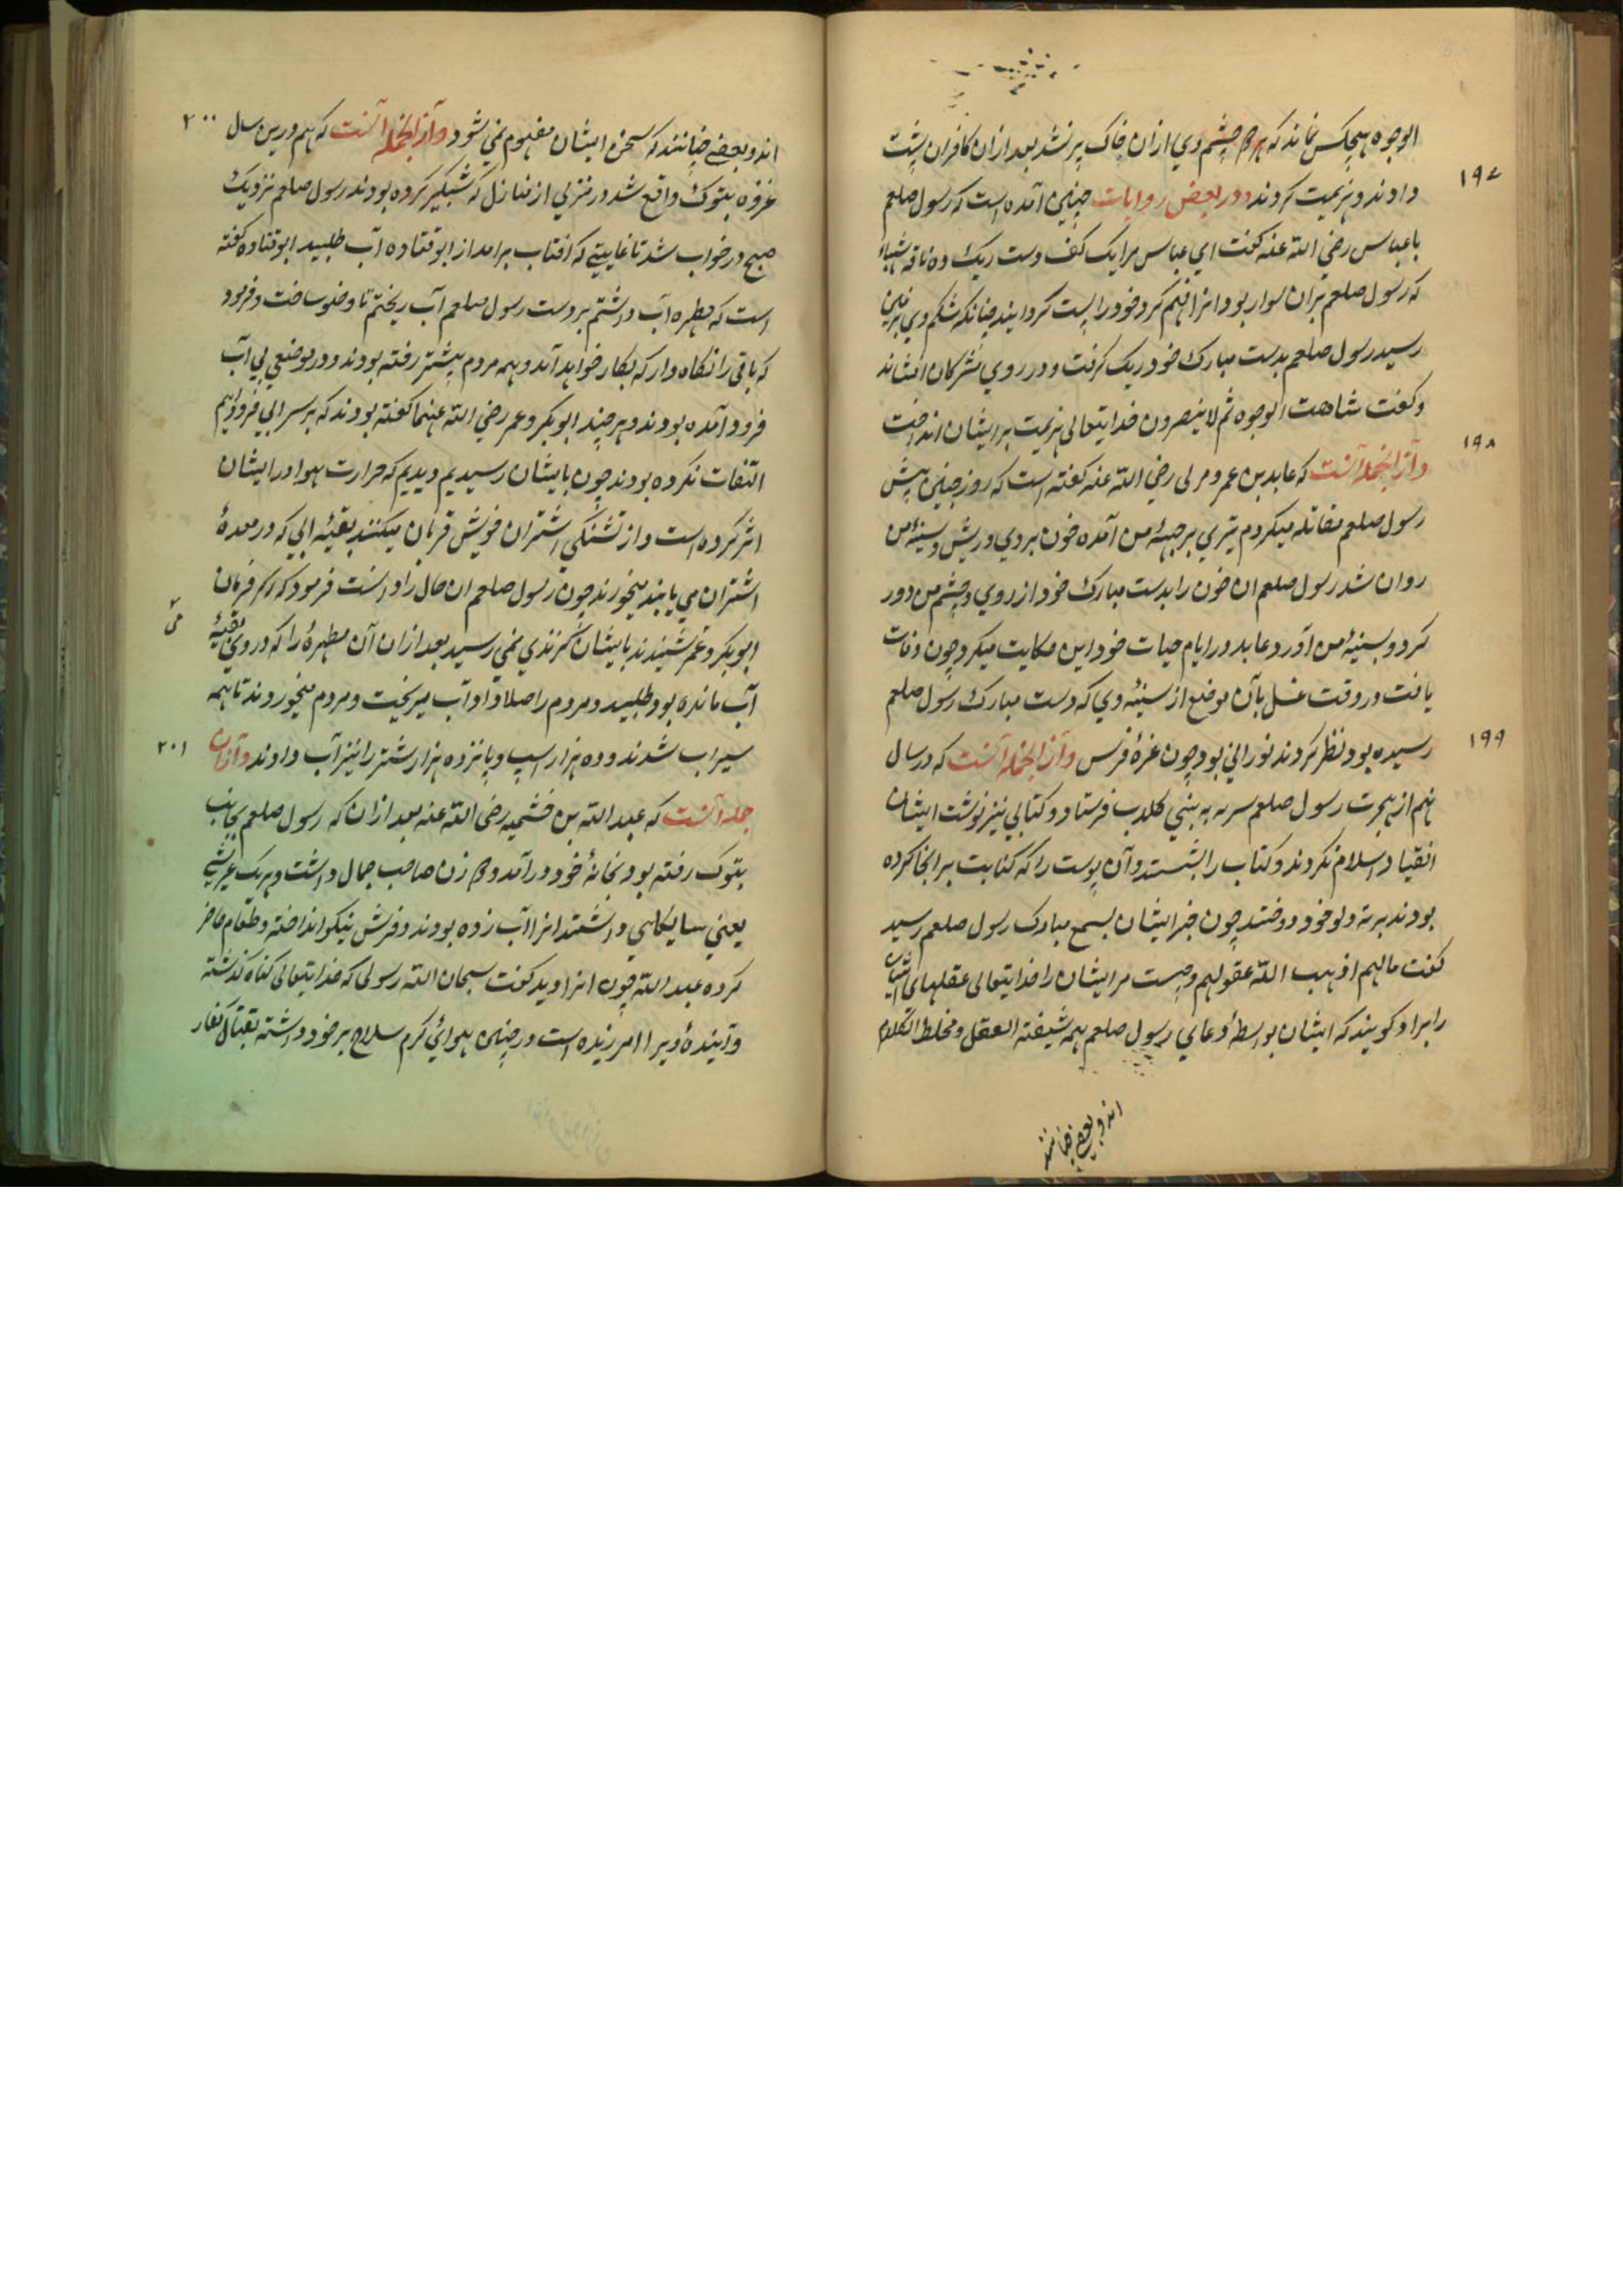 الوجوه هیچکس نماند که هر دو چشم وي ازان خاک پر نشد بعد ازان کافران پشت
۱۹۷
دادند و هزیمت کردند و در بعض روایات چنین آمده است که رسول صلعم
با عباس رضی الله عنه گفت اي عباس مرا یک کف دست ریک ده ناقه شهباء
که رسول صلعم بران سوار بود انرا فهم کرد خود را پست گردانید چنانکه شکم وي بزمین
رسید رسول صلعم بدست مبارک خود ریک گرفت و در روي مشرکان افشاند
و گفت شاهت الوجوه ثم لا ینصرون خدایتعالی هزیمت بر ایشان انداخت
۱۹۸
و آز انجمله آنست که عابد بن عمرو مزنی رضي الله عنه گفته است که روز حنین پیش
رسول صلعم مقاتله میکردم تیري بر جبهۀ من آمده خون بروي و ریش و سینۀ من
روان شد رسول صلعم ان خون را بدست مبارک خود از روي و چشم من دور
کرد و بسینۀ من آورد و عابد در ایام حیات خود این حکایت میکرد چون وفات
یافت در وقت غسل بآن موضع از سینۀ وي که دست مبارک رسول صلعم
۱۹۹
رسیده بود نظر کردند نوراني بود چون غرۀ فرس و آز انجمله آنست که در سال
نهم از هجرت رسول صلعم سریه به بني کلاب فرستاد و کتابي نیز نوشت ایشان
انقیاد اسلام نکردند و کتاب را بشستند و آن پوست را که کتابت بر انجا کرده
بودند بر ته دلو خود دوختند چون خبر ایشان بسمع مبارک رسول صلعم رسید
گفت مالهم اذهب الله عقولهم و چیست مر ایشان را خدایتعالی عقلهای ایشان
را براد گویند که ایشان بواسطۀ دعاي رسول صلعم همه شیفته العقل و مخلط الکلام
اند و بعضي چنانند
۲۰۰
اند و بعضي چنانند که سخن ایشان مفهوم نمي شود و آز انجمله آنست که هم درین سال
غزوه بتوک واقع شد در منزلي از منازل که شبگیر کرده بودند رسول صلعم نزدیک
صبح در خواب شد تا غایتي که افتاب برامد از ابو قتاده آب طلبید ابو قتاده گفته
است که مطهره آب داشتم بر دست رسول صلعم آب ریختم تا وضو ساخت و فرمود
که باقی را نگاه دار که بکار خواهد آمد و همه مردم پیشتر رفته بودند و در موضعي بي آب
فرود آمده بودند و هر چند ابو بکر و عمر رضي الله عنهما گفته بودند که بر سر ابي فرود آئیم
التفات نکرده بودند چون بایشان رسیدیم دیدیم که حرارت هوا در ایشان
اثر کرده است و از تشنگي اشتران خویش قربان میکنند بقیۀ ابي که در معدۀ
اشتران مي یابند میخورند چون رسول صلعم ان حال را دانست فرمود که اگر فرمان
ابو بکر و عمر شنیدند بایشان گزندي نمي رسید بعد ازان آن مطهرۀ را که در وي بقیۀ
آب مانده بود طلبید و مردم را صلا داد و آب میریخت و مردم میخوردند تا همه
۲۰۱
سیراب شدند و ده هزار اسپ و پانزده هزار شتر را نیز آب دادند و آز ان
جمله آنست که عبد الله بن خثیمه رضی الله عنه بعد ازان که رسول صلعم بجانب
بتوک رفته بود بخانۀ خود درآمد دو زن صاحب جمال داشت و هر یک عریشي
یعني سایگاهي داشتند انرا آب زده بودند و فرش نیکو انداخته و طعام حاضر
کرده عبد الله چون انرا دید گفت سبحان الله رسولی که خدایتعالی گناه گذشته
و آیندۀ ویرا امرزیده است در چنین هوائي گرم سلاح بر خود داشته بقتال کفار